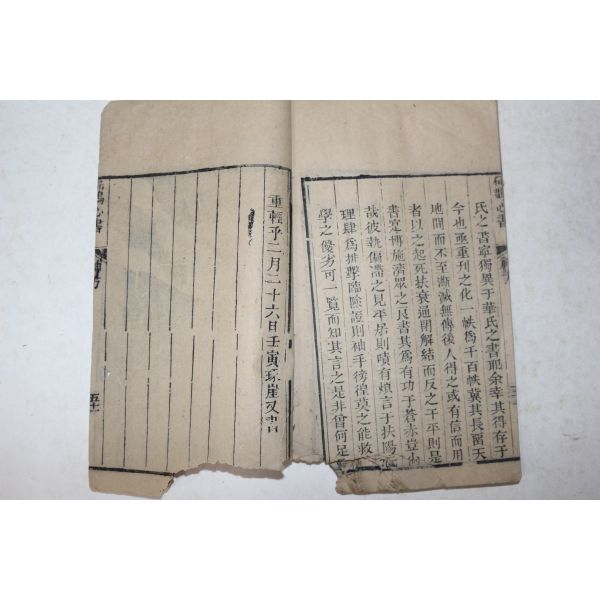 扁鵲心書
氏之書寧獨異于華氏之書耶余幸其得存于
今也亟重刊之化一帙爲千百帙冀其長留天
地間而不至澌滅無傳後人得之或有信而用
者以之起死扶衰通閉解結而反之于平則是
書寔博施濟眾之良書其爲有功于蒼赤豈
哉彼執偏滯之見平居則嘖有煩言于扶陽
理肆爲排擊臨險證則袖手徬徨莫之能救
學之優劣可一覽而知其言之是非曾何足
重輕乎二月二十六日壬寅琢崖又書
鵲心書
五十